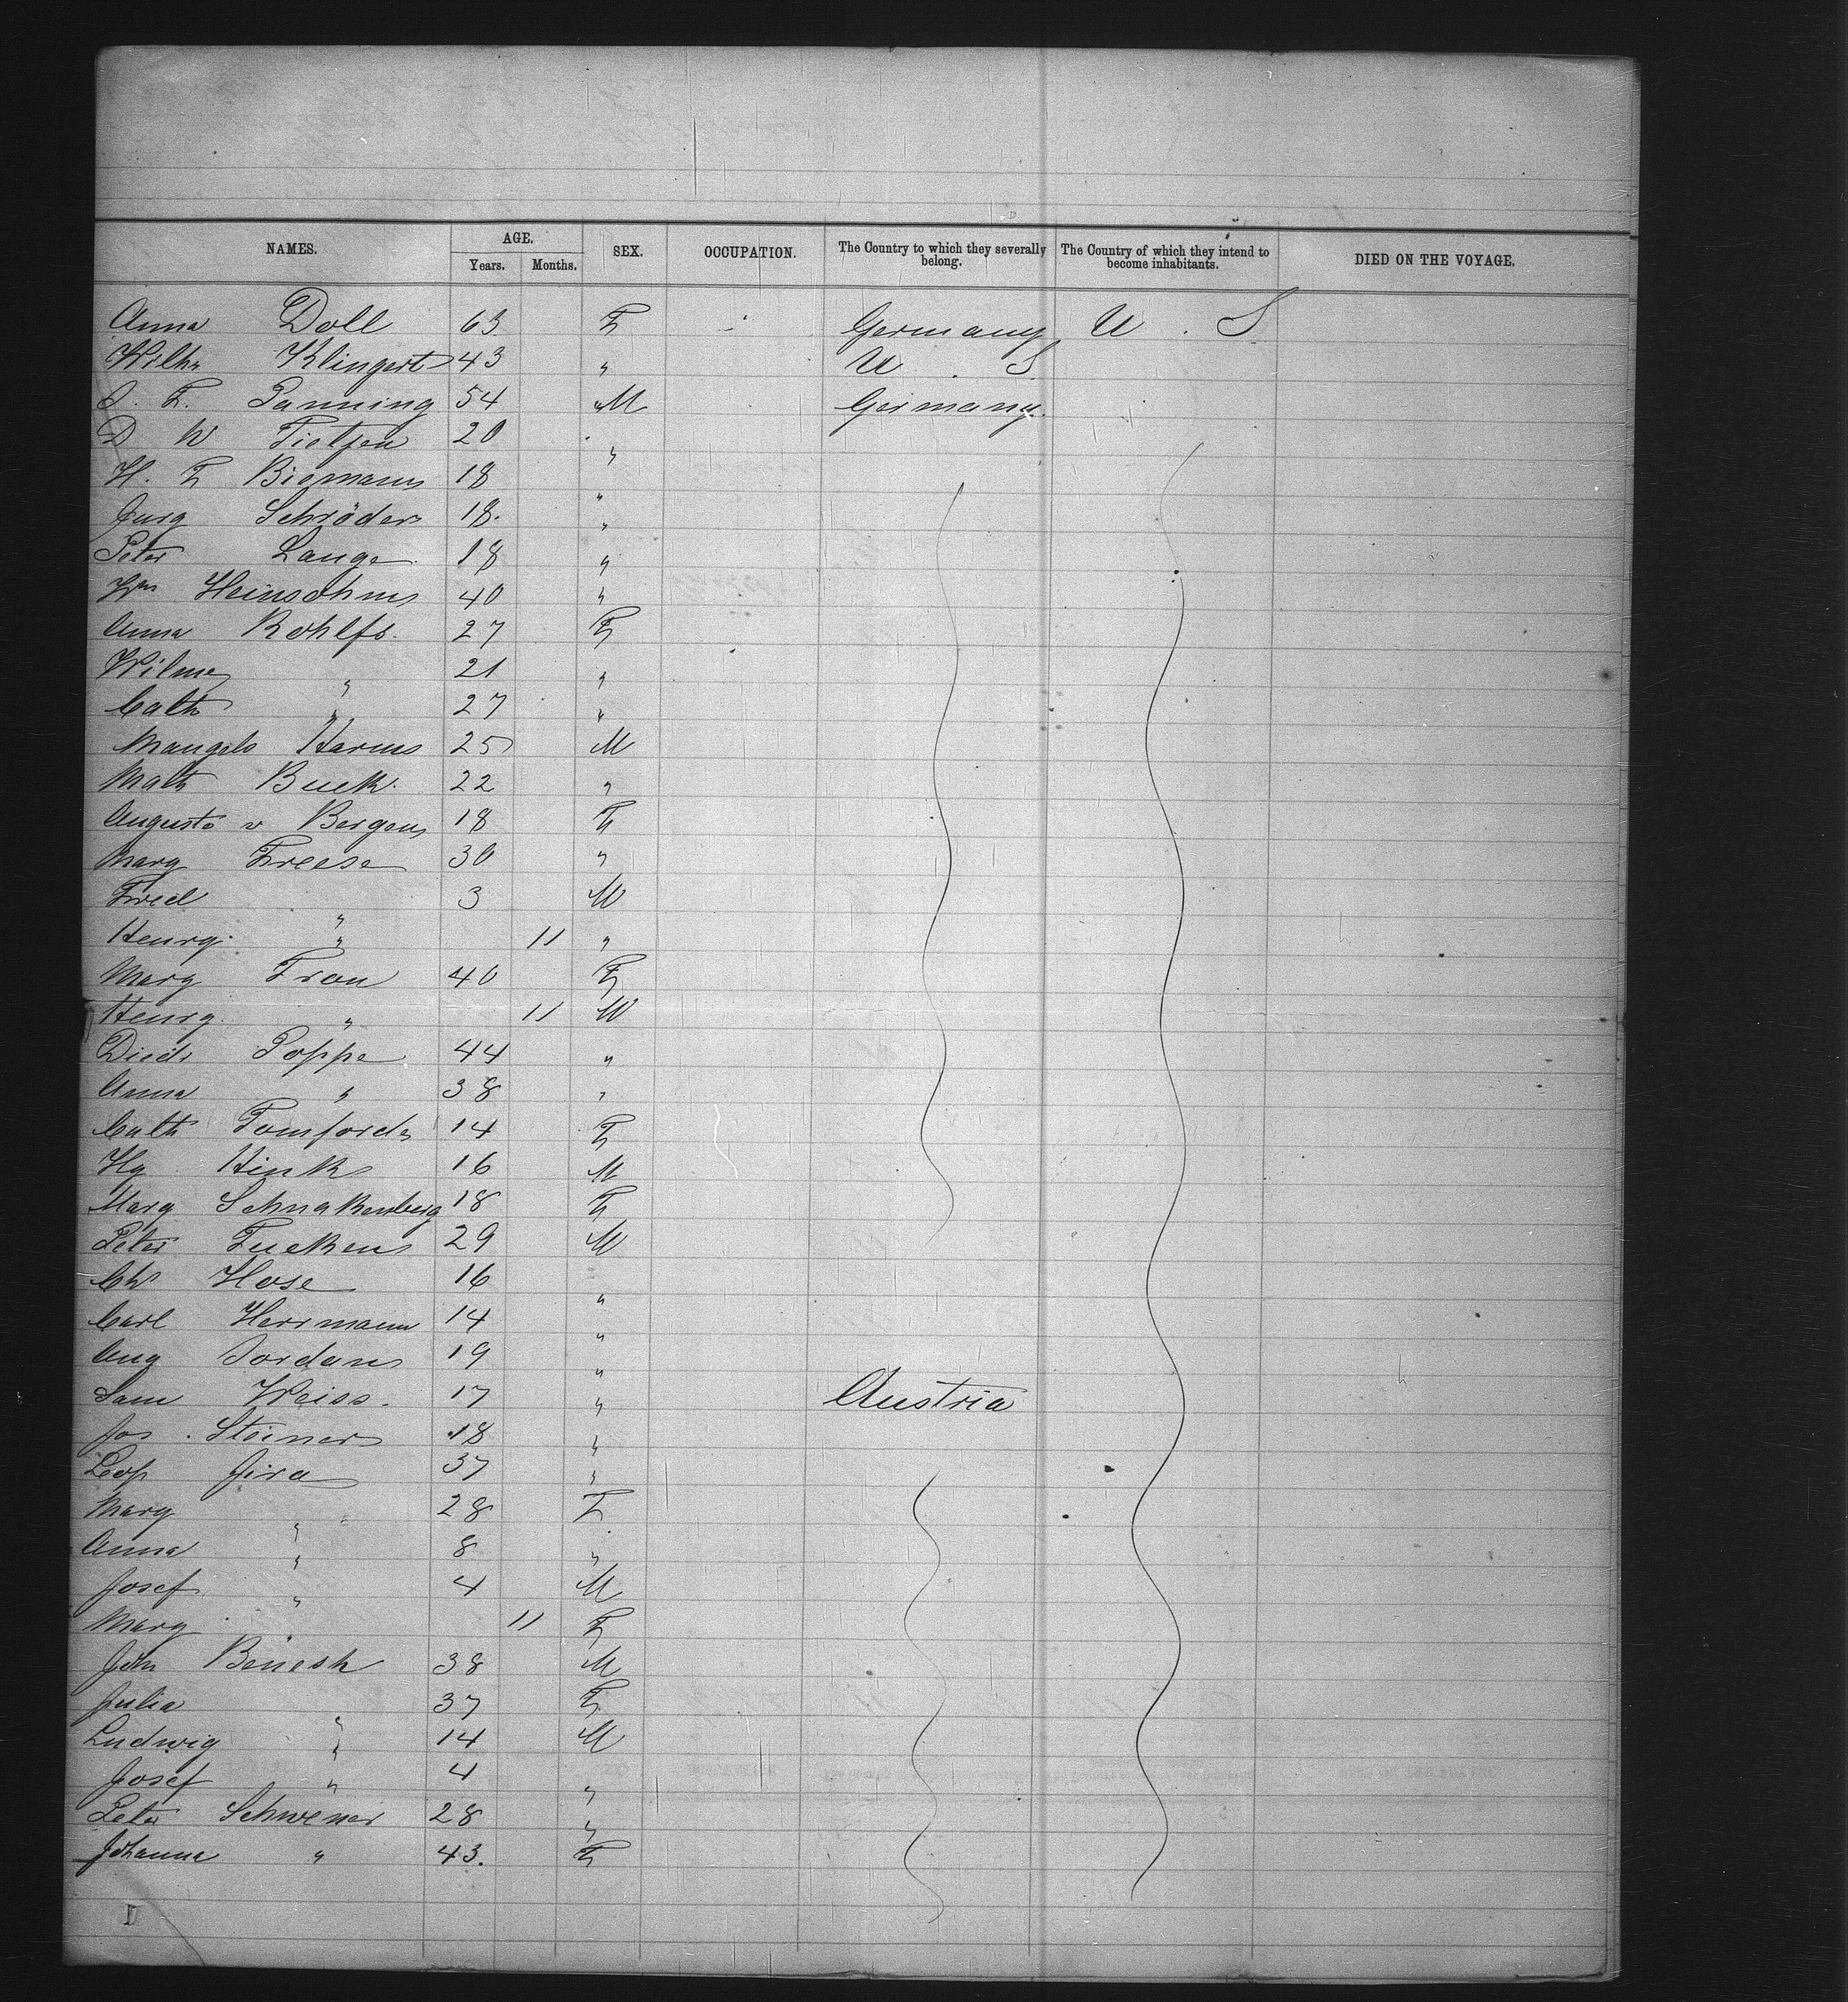 NAMES. AGE. SEX. OCCUPATION. The Country to which they severally belong. The Country of which they intend to become inhabitants. DIED ON THE VOYAGE.
Years. Months.
Anna Doll 63 F Germany U. S
Wilh Klingert 43 " U. S
J. F. Panning 54 " M Germany.
D W Tietjen 20 "
H. F Biemann 18 "
Jurg Schröder 18. "
Peter Lange 18 "
Wm Heinsohn 40 "
Anna Rohlfs. 27 F
Wilme " 21 "
Cath " 27 "
Mangels Harms 25 M
Math Buck. 22 "
Auguste v Bergen 18 F
Marg Freese 30 "
Fried " 3 M
Henry " 11 "
Marg Tron 40 F
Henry " 11 M
Died Poppe 44 "
Anna " 38 "
Cath Tomforde 14 F
Hy Hink 16 M
Marg Schnakenberg 18 F
Peter Fucken 29 M
Chr Hose 16 "
Carl Herrmann 14 "
Aug Jordan 19 "
Sam Weiss. 17 " Austria
Jos. Steiner 18 "
Leop Jira 37 "
Mary " 28 F
Anna " 8 "
Josef " 4 M
Mary 11 F
Joh Benesh 38 M
Julia " 37 F
Ludwig " 14 M
Josef " 4 "
Peter Schwener 28 "
Johanna " 43. F